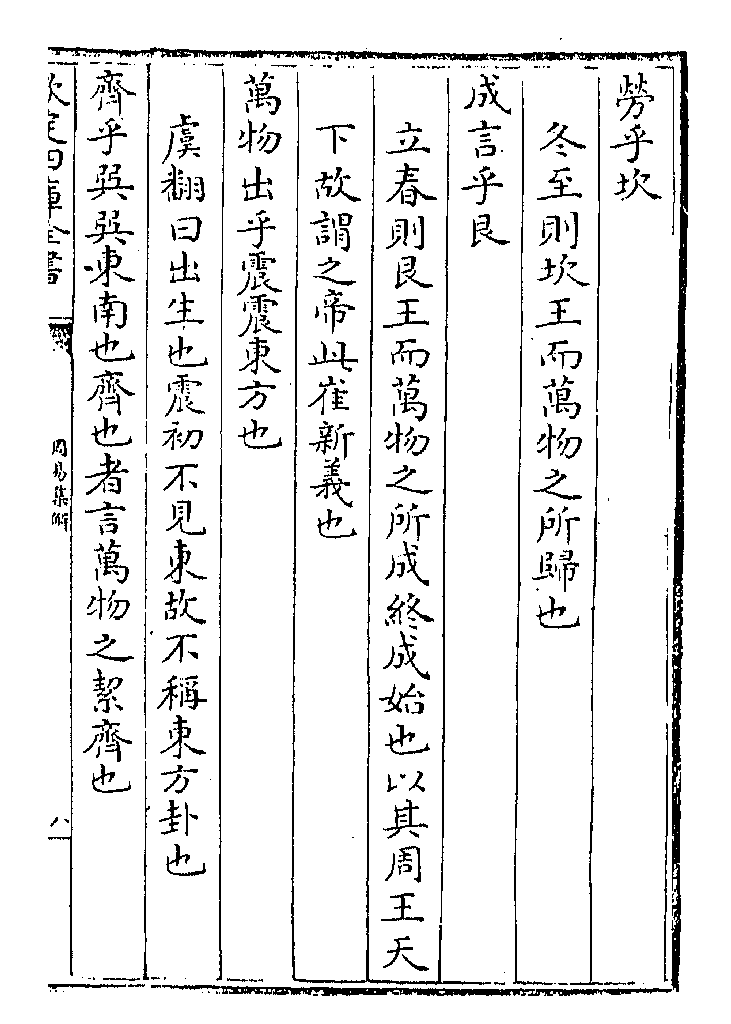 勞乎坎
冬至則坎王而萬物之所歸也
成言乎艮
立春則艮王而萬物之所成終成始也以其周王天
下故謂之帝此崔新義也
萬物出乎震震東方也
虞翻曰出生也震初不見東故不稱東方卦也
齊乎巽巽東南也齊也者言萬物之絜齊也
欽定四庫全書
周易集解
八